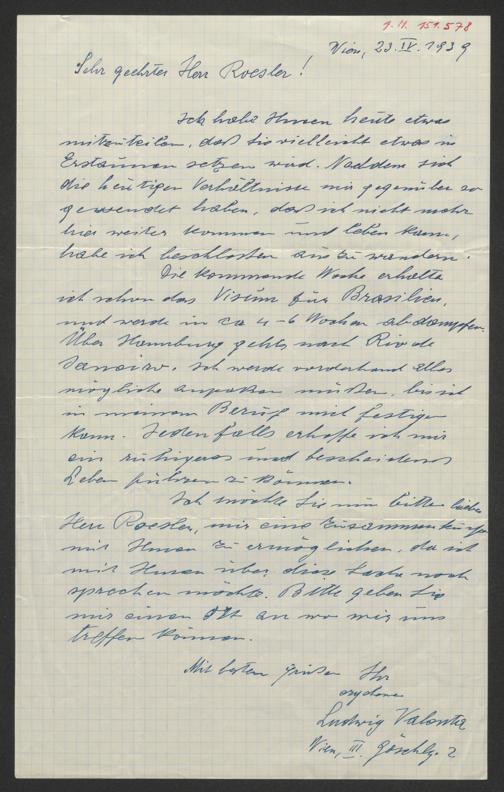 I.N. 151.578
Wien, 23.IV.1939
Sehr geehrter Herr Roessler!
Ich habe Ihnen heute etwas
mitzuteilen, daß Sie vielleicht etwas in
Erstaunen setzen wird. Nachdem sich
die heutigen Verhältnisse mir gegenüber so
gewendet haben, daß ich nicht mehr
hier weiter kommen und leben kann,
habe ich beschlossen aus zu wandern.
Die kommende Woche erhalte
ich schon das Visum für Brasilien,
und werde in ca 4-6 Wochen abdampfen.
Über Hamburg gehts nach Rio de
Janeiro. Ich werde vorderhand alles
mögliche anpacken müssen, bis ich
in meinem Beruf mich festigen
kann. Jedenfalls erhoffe ich mir
ein ruhigeres und bescheidenes
Leben führen zu können.
Ich möchte Sie nun bitten lieber
Herr Roessler, mir eine Zusammenkunft
mit Ihnen zu ermöglichen, da ich
mit Ihnen über diese Sache noch
sprechen möchte. Bitte geben Sie
mir einen Ort an wo wir uns
treffen können.
Mit besten Grüßen Ihr
ergebener
Ludwig Valenta
Wien, III. Göschlg. 2